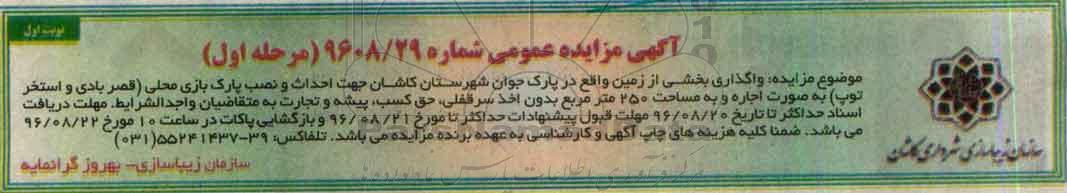 نوبت اول
آگهی مزایده عمومی شماره ۹۶۰۸/۲۹ (مرحله اول)
موضوع مزایده: واگذاری بخشی از زمین واقع در پارک جوان شهرستان کاشان جهت احداث و نصب پارک بازی محلی (قصر بادی و استخر
توپ) به صورت اجاره و به مساحت ۲۵۰ متر مربع بدون اخذ سرقفلی، حق کسب، پیشه و تجارت به متقاضیان واجدالشرایط. مهلت دریافت
اسناد حداکثر تا تاریخ ۹۶/۰۸/۲۰ مهلت قبول پیشنهادات حداکثر تا مورخ ۹۶/۰۸/۲۱ و بازگشایی پاکات در ساعت ۱۰ مورخ ۹۶/۰۸/۲۲
می باشد. ضمنا کلیه هزینه های چاپ آگهی و کارشناسی به عهده برنده مزایده می باشد. تلفاکس: ۳۹-۵۵۲۴۱۴۳۷(۰۳۱)
سازمان زیباسازی شهرداری کاشان
سازمان زیباسازی- بهروز گرانمایه